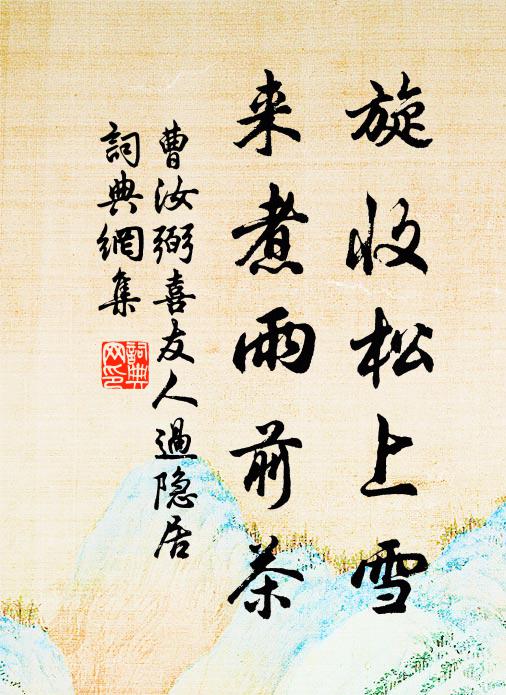 旋收松上雪
来煮雨前茶
曹汝弼喜友人過隐居
詞典網集
詞典網印